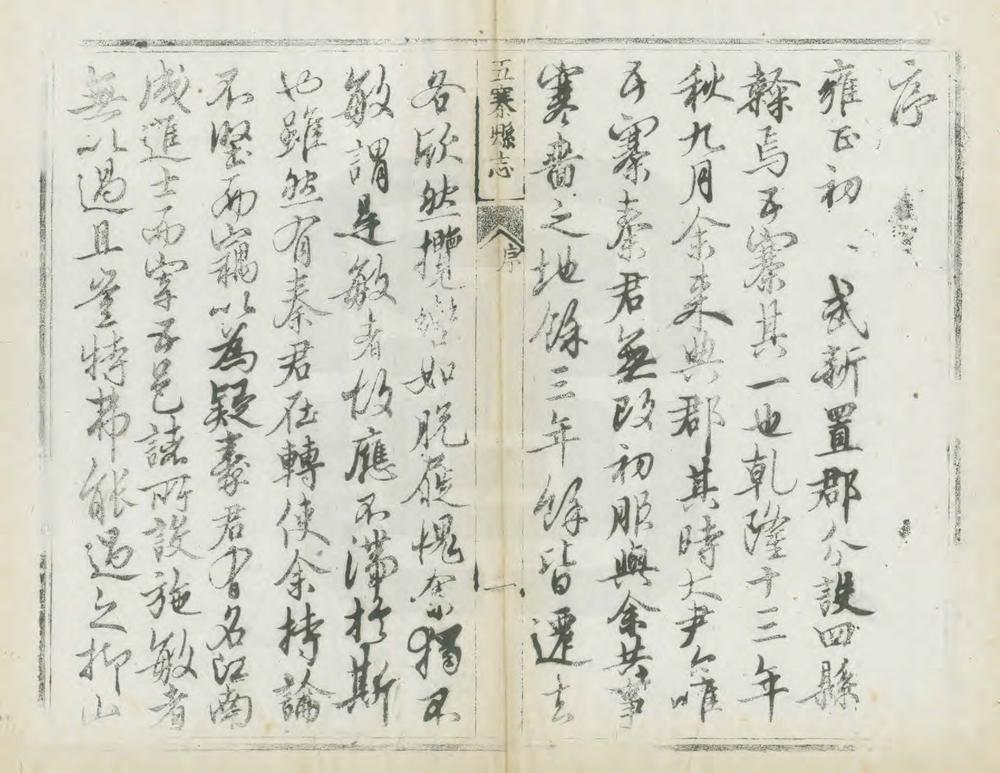 序
雍正初、武新置郡分設四縣
隸焉五寨其一也乾隆十三年
秋九月余来典郡其時大尹令唯
五寨秦君無改初服與余共事
寒嗇之地餘三年餘皆遷去
五寨縣志
序
一
各欣然攬轡如脫屣愧余獨不
敏謂是敏者故應不滯於斯
也雖然有秦君在轉使余持論
不堅而竊以為疑秦君有名江南
成進士而宰五邑諸所設施敏者
無以過且豈特弗能過之抑山